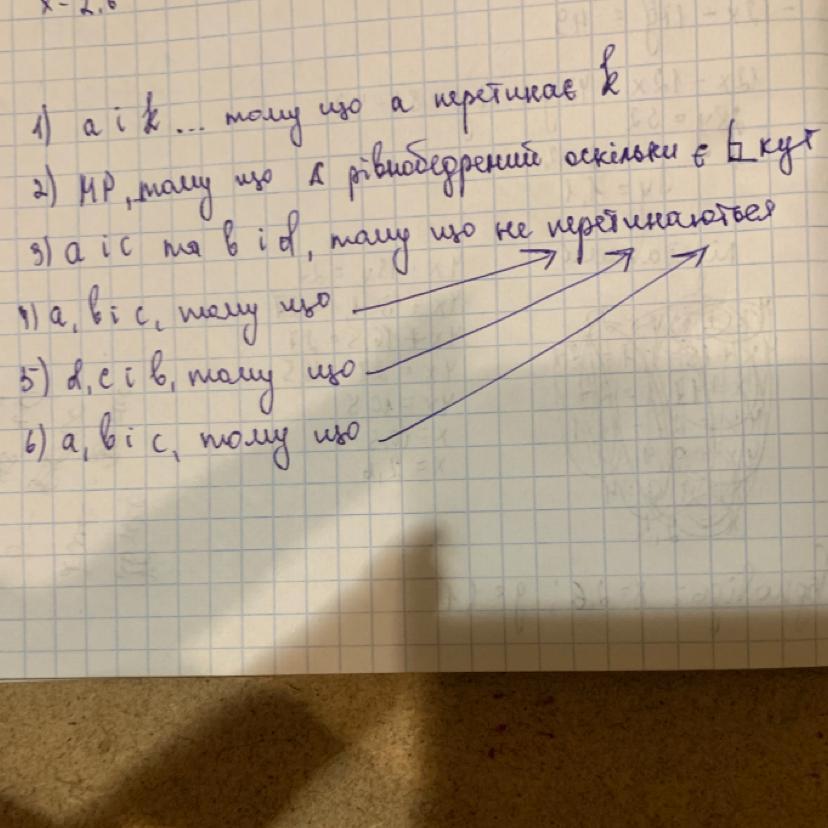 x - 2,6
1) a i k ... тому що a перетинає k
2) MP, тому що Δ рівнобедрений оскільки є кут
3) a i c та b i d, тому що не перетинаються
4) a, b i c, тому що
5) d, c i b, тому що
6) a, b i c, тому що